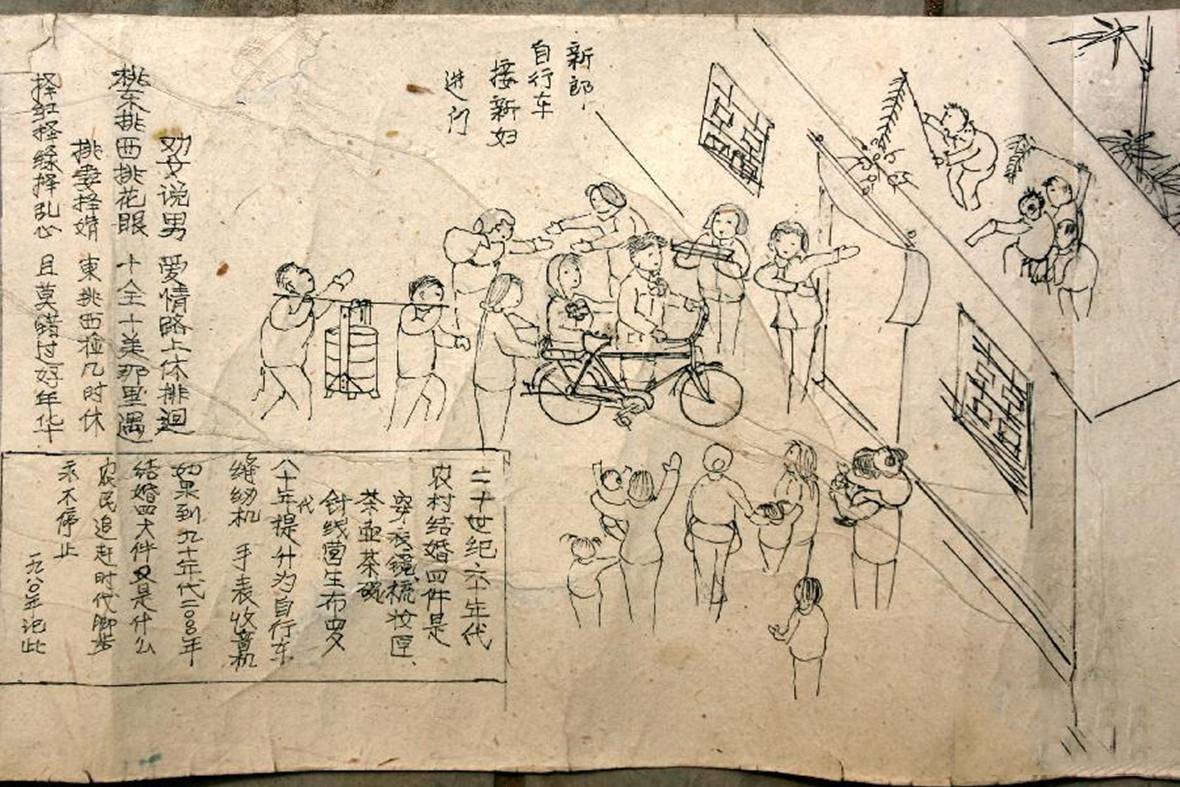 新郎
自行车
接新妇
进门
劝女说男 爱情路上休排迴
挑东挑西挑花眼 十全十美那里遇
挑妻择婿 東挑西检几时休
择红择绿择乱心 且莫错过好年华
二十世纪六十年代
农村结婚四件是
穿衣镜梳妆匣
茶壶茶碗
针线营生布
八十年代提升为自行车
缝纫机 手表收音机
如果到九十年代二〇〇〇年
结婚四大件又是什么
农民追赶时代脚步
永不停止
一九八〇年记此